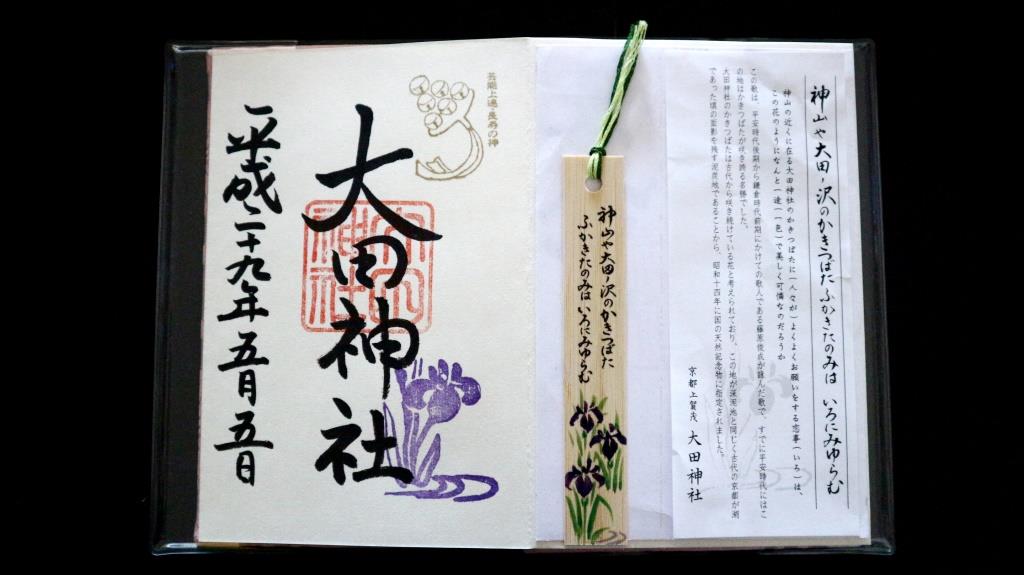 神山や大田ノ沢のかきつばたふかきたのみは いろにみゆらむ
神山の近くに在る大田神社のかきつばたに（人々が）よくよくお願いをする恋事（いろ）は、
この花のようになんと一途（一色）で美しく可憐なのだろうか
この歌は、平安時代後期から鎌倉時代前期にかけての歌人である藤原俊成が詠んだ歌で、すでに平安時代にはこ
の地はかきつばたが咲き誇る名勝でした。
大田神社のかきつばたは古代から咲き続けている花と考えられており、この地が深泥池と同じく古代の京都が湖
であった頃の面影を残す泥炭地であることから、昭和十四年に国の天然記念物に指定されました。
京都上賀茂 大田神社
神山や大田ノ沢のかきつばた
ふかきたのみは いろにみゆらむ
芸能上達・長寿の神
大田神社
大田神社
平成二十九年五月五日